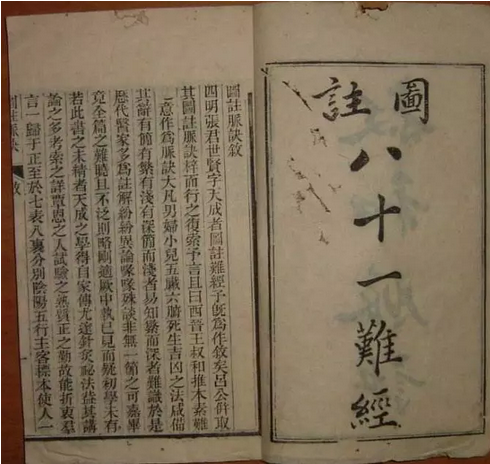 圖註
八十一難經
圖註脈訣敘
四明張君世賢字天成者圖註難經予既為作敘矣呂公併取
其圖註脈訣梓而行之復索予言且曰西晉王叔和推本素難
之意作為脈訣大凡男婦小兒五臟六腑死生吉凶之法咸備
其辭有簡有繁有淺有深簡而淺者易知繁而深者難識於是
歷代醫家多為註解紛紛異論喙喙殊談非無一節之可嘉畢
竟全篇之難曉且不泛則略厥中執己見而疑初學未有
若此書之未精者天成之學得自家傳尤達針灸祕法益其講
論之多考索之詳思之人試驗之熟質正之勤故能折衷羣
言一歸于正至於七表八裏分別陰陽五行主客標本使人一
圖註脈訣 敘 一